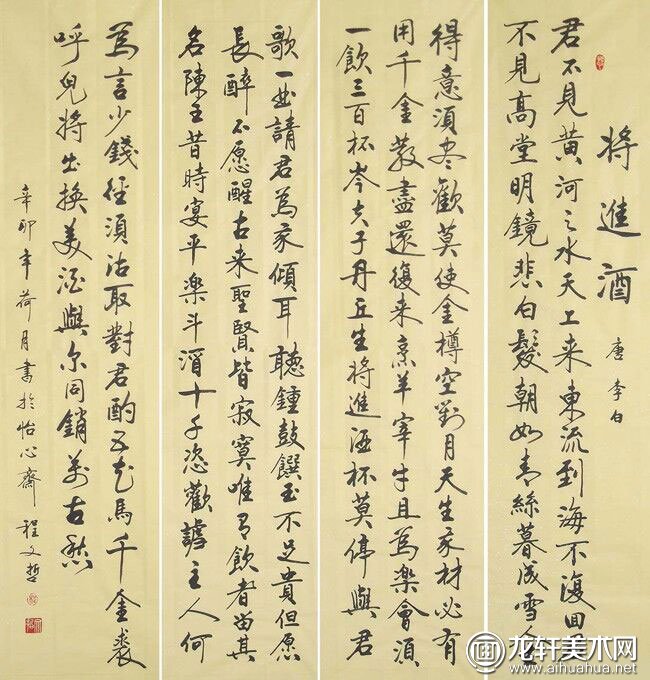 將進酒
唐李白
君不見黃河之水天上来東流到海不復回
不見高堂明鏡悲白髮朝如青絲暮成雪
得意須尽歡莫使金樽空對月天生我材必有
用千金散盡還復来烹羊宰牛且為樂會須
一飲三百杯岑夫子丹丘生將進酒杯莫停與君
歌一曲請君為我傾耳聽鍾鼓饌玉不足貴但愿
長醉不愿醒古来聖賢皆寂寞唯有飲者留其
名陳王昔時宴平樂斗酒十千恣歡謔主人何
為言少錢径須沽取對君酌五花馬千金裘
呼兒將出換美酒與尔同銷萬古愁
辛卯年荷月書於怡心齋程文哲
龙轩美术网
www.aihuahua.net